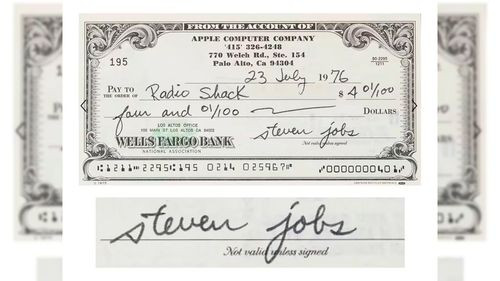 FROM THE ACCOUNT OF
APPLE COMPUTER COMPANY
'415' 326-4248
770 Welch Rd., Ste. 154
Palo Alto, CA 94304
195
90-2295
1211
23 July 1976
PAY TO
THE ORDER OF Radio Shack $ 4 01/100
four and 01/100 DOLLARS
LOS ALTOS OFFICE
WELLS FARGO BANK
NATIONAL ASSOCIATION
steven jobs
Not valid unless signed
1211 2295 195 0214 025967 0000000401
steven jobs
Not valid unless signed